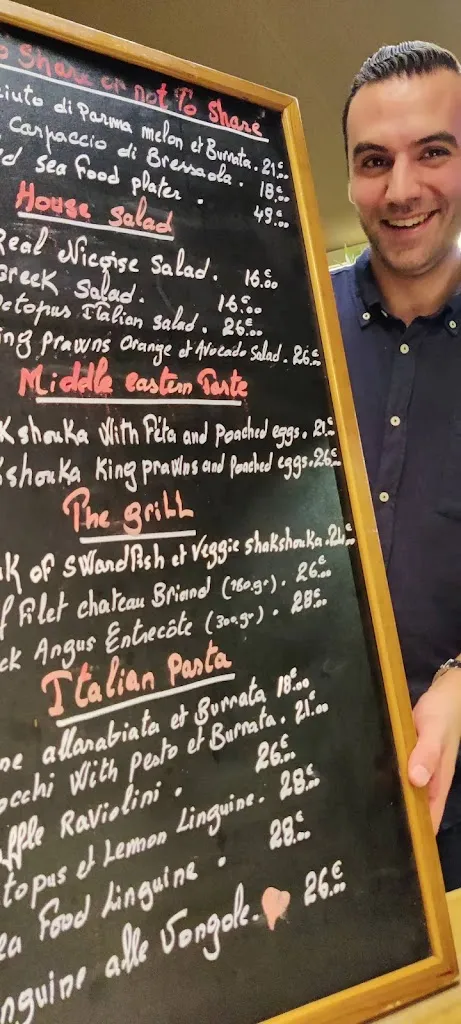 o Share or not To Share
iuto di Parma melon et Burrata. 21€
Carpaccio di Bressaola. 18€.00
ed Sea Food plater. 49€.00
House Salad
Real Niçoise Salad. 16€.00
Greek Salad. 16€.00
Octopus Italian Salad. 26€.00
ing Prawns Orange et Avocado Salad. 26€.00
Middle eastern Taste
kshouka With Pita and Poached eggs. 21€.00
kshouka King prawns and Poached eggs. 26€.00
The grill
k of Swardfish et Veggie shakshouka. 24€.00
f Filet chateau Briand (180.gr). 26€.00
ck Angus Entrecôte (300.gr). 28€.00
Italian Pasta
ne allarabiata et Burrata 18€.00
occhi With pesto et Burrata. 21€.00
uffle Raviolini. 26€.00
topus et Lemon Linguine. 28€.00
ea Food Linguine. 28€.00
nguine alle Vongole. 26€.00